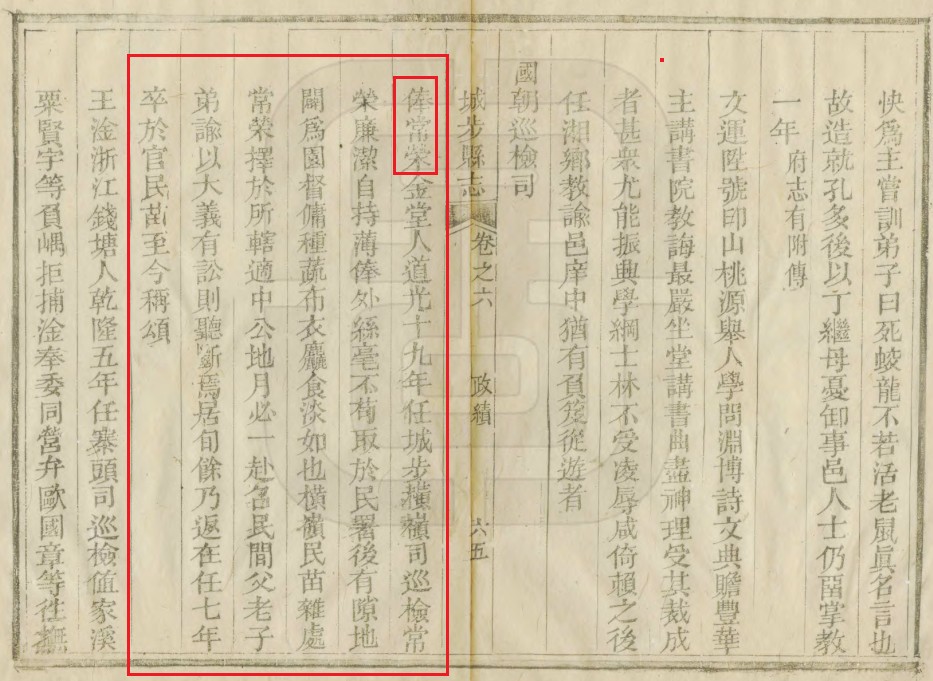 快爲主嘗訓弟子曰死蛟龍不若活老鼠眞名言也
故造就孔多後以丁繼母憂卸事邑人士仍畱掌教
一年 府志有附傳
文運陞號印山桃源舉人學問淵博詩文典贍豐華
主講書院教誨最嚴坐堂講書曲盡神理受其裁成
者甚衆尤能振興學綱士林不受凌辱咸倚賴之後
任湘鄉教諭邑庠中猶有負笈從遊者
國朝巡檢司
城步縣志 卷之六 政績 六五
俸常榮金堂人道光十九年任城步橫嶺司巡檢常
榮廉潔自持薄俸外絲毫不苟取於民署後有隙地
闢爲園督傭種蔬布衣麤食淡如也橫嶺民苗雜處
常榮擇於所轄適中公地月必一赴召民間父老子
弟諭以大義有訟則聽斷焉居旬餘乃返在任七年
卒於官民苗至今稱頌
王淦浙江錢塘人乾隆五年任寨頭司巡檢値家溪
粟賢宇等負嵎拒捕淦奉委同營弁歐國章等往撫